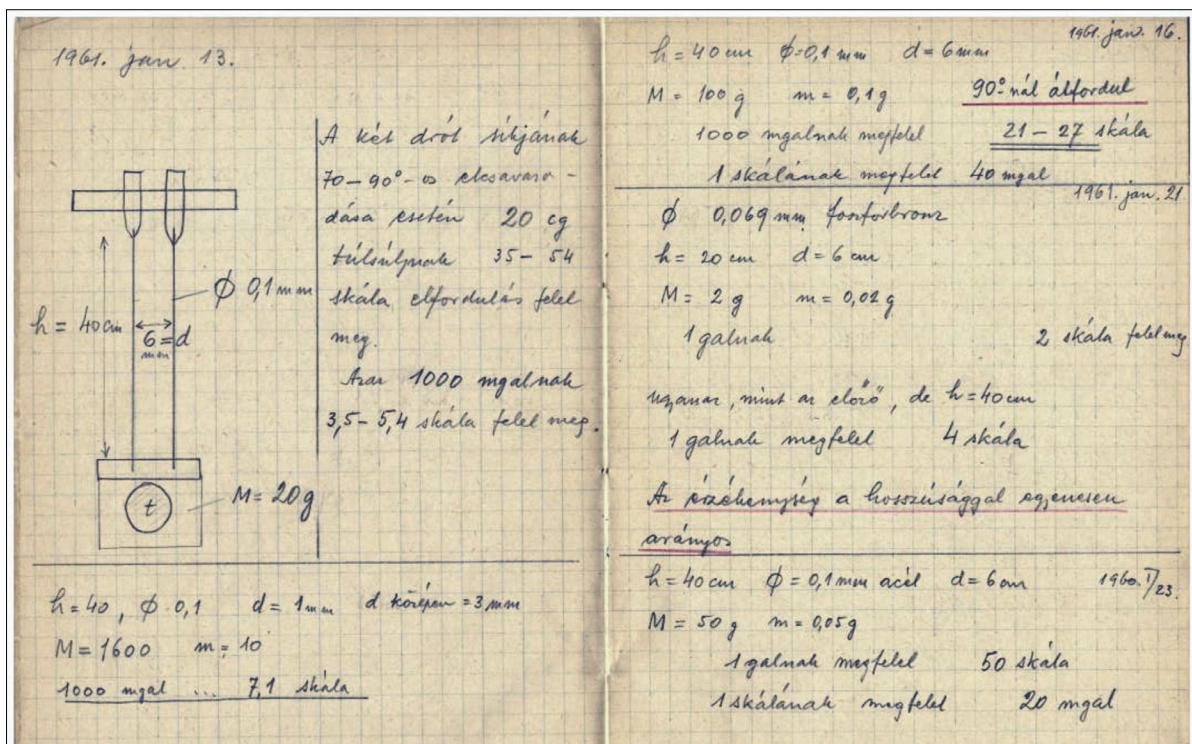 1961. jan 13.
h = 40 cm
ϕ 0,1 mm
6 = d
mm
t
M = 20 g
A két drót síkjának
70 – 90°-os elcsavaro-
dása esetén 20 cg
túlsúlynak 35 – 54
skála elfordulás felel
meg.
Azaz 1000 mgalnak
3,5 – 5,4 skála felel meg.
h = 40, ϕ 0,1 d = 1 mm d középen = 3 mm
M = 1600 m = 10
1000 mgal ... 7,1 skála
1961. jan. 16.
h = 40 cm ϕ = 0,1 mm d = 6 mm
M = 100 g m = 0,1 g 90°-nál átfordul
1000 mgalnak megfelel 21 – 27 skála
1 skálának megfelel 40 mgal
1961. jan. 21
ϕ 0,069 mm foszforbronz
h = 20 cm d = 6 cm
M = 2 g m = 0,02 g
1 galnak 2 skála felel meg
ugyanaz, mint az előző, de h = 40 cm
1 galnak megfelel 4 skála
Az érzékenység a hosszúsággal egyenesen
arányos
h = 40 cm ϕ = 0,1 mm acél d = 6 cm 1960. I/23.
M = 50 g m = 0,05 g
1 galnak megfelel 50 skála
1 skálának megfelel 20 mgal